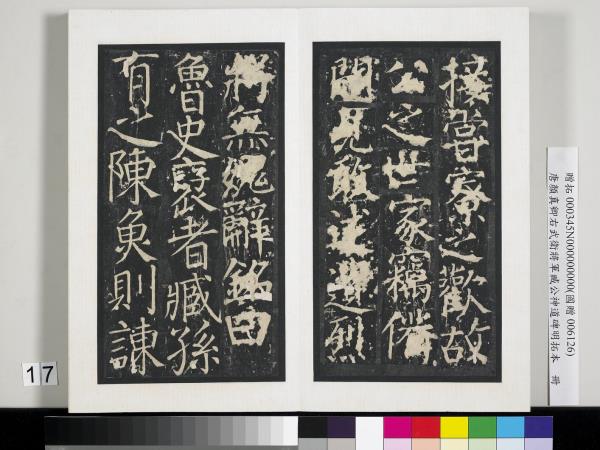 接甞寮之歡故
公之世家竊備
聞見敢述遺烈
將無愧辭銘曰
魯史褒者臧孫
有之陳魚則諫
贈拓 000345N000000000(國贈 006126)
唐顏真卿右武衛將軍臧公神道碑明拓本 冊
17